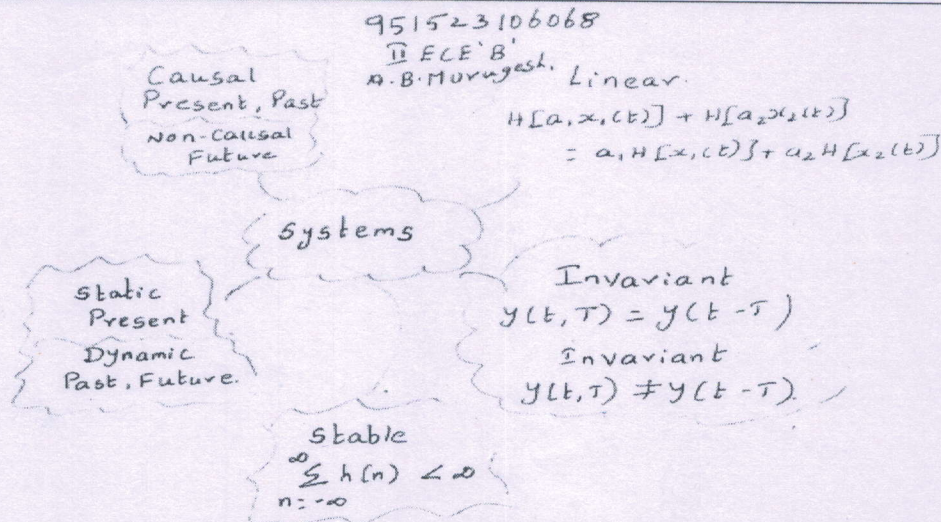 9515223106068
II ECE 'B'
A.B.Murugesh.
Causal
Present, Past
Non-Causal
Future
Linear.
H[a₁x₁(t)] + H[a₂x₂(t)]
= a₁H[x₁(t)] + a₂H[x₂(t)]
Systems
Static
Present
Dynamic
Past, Future.
Invariant
y(t,T) = y(t-T)
Invariant
y(t,T) ≠ y(t-T).
Stable
∞
Σ h(n) < ∞
n=-∞